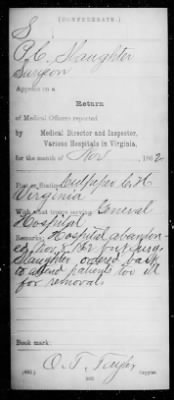 (CONFEDERATE.)
S
P. C. Slaughter
Surgeon
Appears on a
Return
of Medical Officers reported
by Medical Director and Inspector,
Various Hospitals in Virginia,
for the month of Nov, 1862
Post or Station: Culpeper C. H.
Virginia
With what troops serving: General
Hospital
Remarks: Hospital abandon-
ed Nov. 8 1862 but Surg.
Slaughter ordered back
to attend patients too ill
for removal
Book mark:
O. T. Taylor
Copyist.